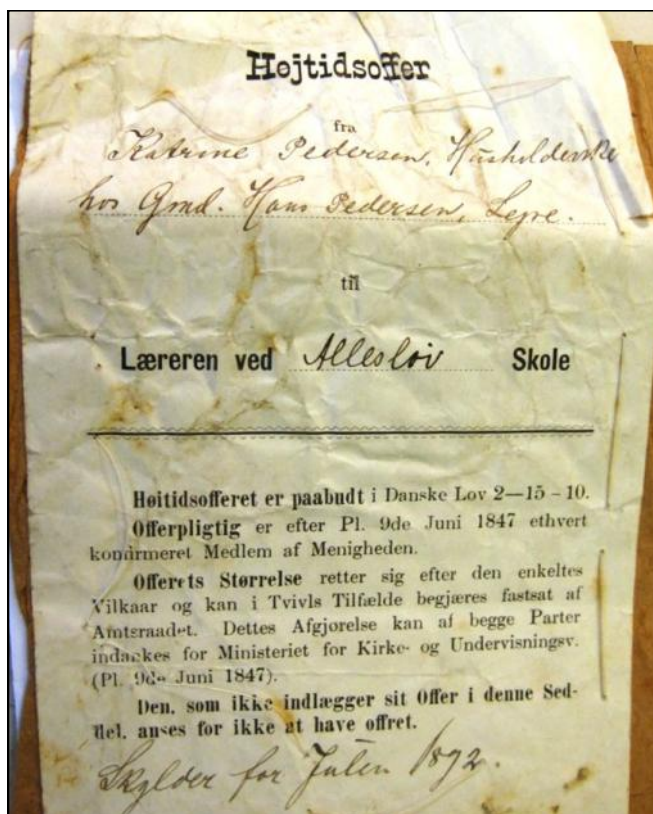 Højtidsoffer
fra
Katrine Pedersen, Husholderske
hos Gmd. Hans Pedersen, Lejre.
til
Læreren ved Allesløv Skole
Høitidsofferet er paabudt i Danske Lov 2—15-10.
Offerpligtig er efter Pl. 9de Juni 1847 ethvert
konfirmeret Medlem af Menigheden.
Offerets Størrelse retter sig efter den enkeltes
Vilkaar og kan i Tvivls Tilfælde begjæres fastsat af
Amtsraadet. Dettes Afgjørelse kan af begge Parter
indankes for Ministeriet for Kirke- og Undervisningsv.
(Pl. 9de Juni 1847).
Den, som ikke indlægger sit Offer i denne Sed-
del, anses for ikke at have offret.
Skylder for Julen 1892.